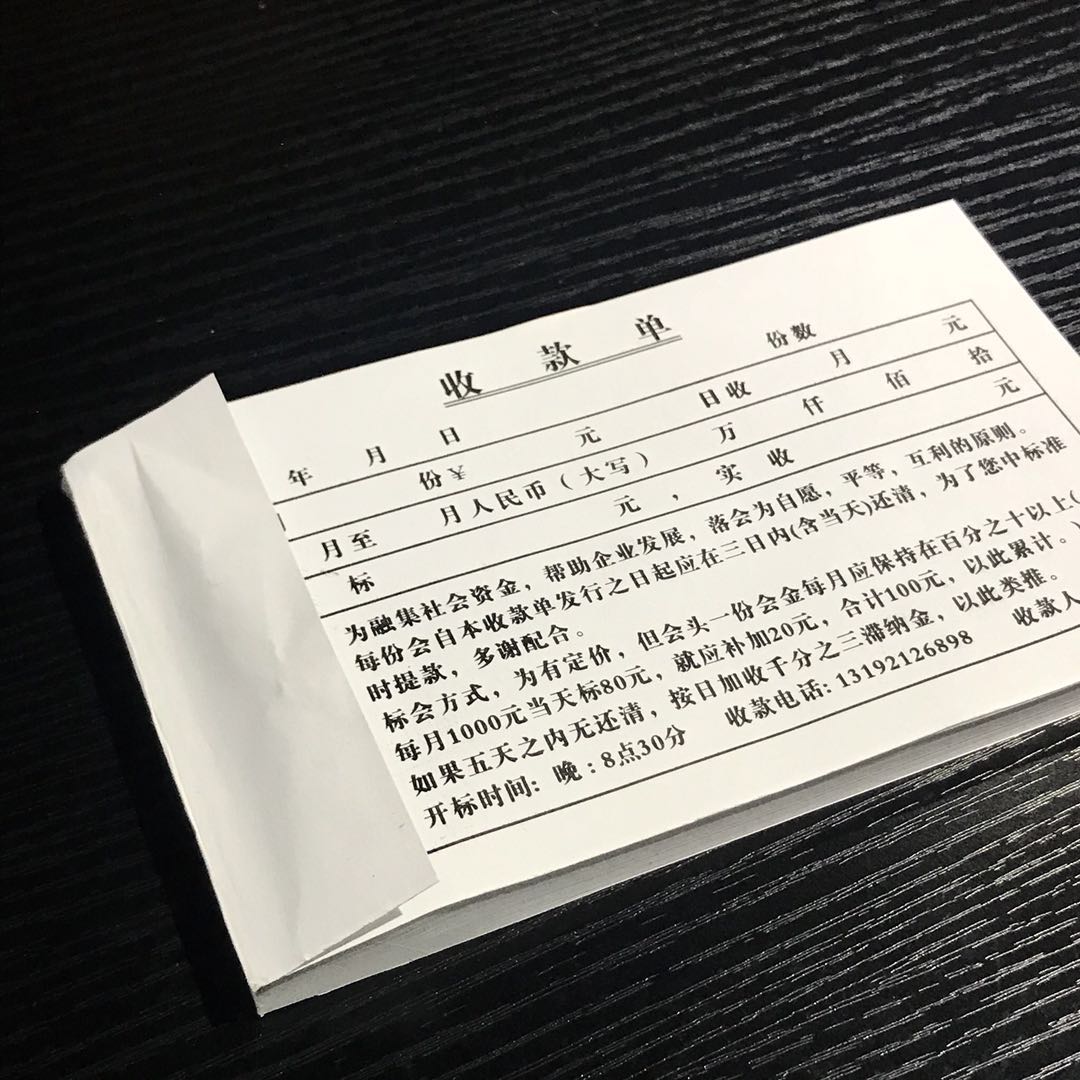 收款单
年 月 日 份数
份¥ 元 日收 月 元
月至 月人民币（大写） 万 仟 佰 拾
标 元，实 收 元
为融集社会资金，帮助企业发展，落会为自愿，平等，互利的原则。
每份会自本收款单发行之日起应在三日内(含当天)还清，为了您中标准
时提款，多谢配合。
标会方式，为有定价，但会头一份会金每月应保持在百分之十以上(
每月1000元当天标80元，就应补加20元，合计100元，以此累计。)
如果五天之内无还清，按日加收千分之三滞纳金，以此类推。
开标时间: 晚：8点30分 收款电话: 13192126898 收款人